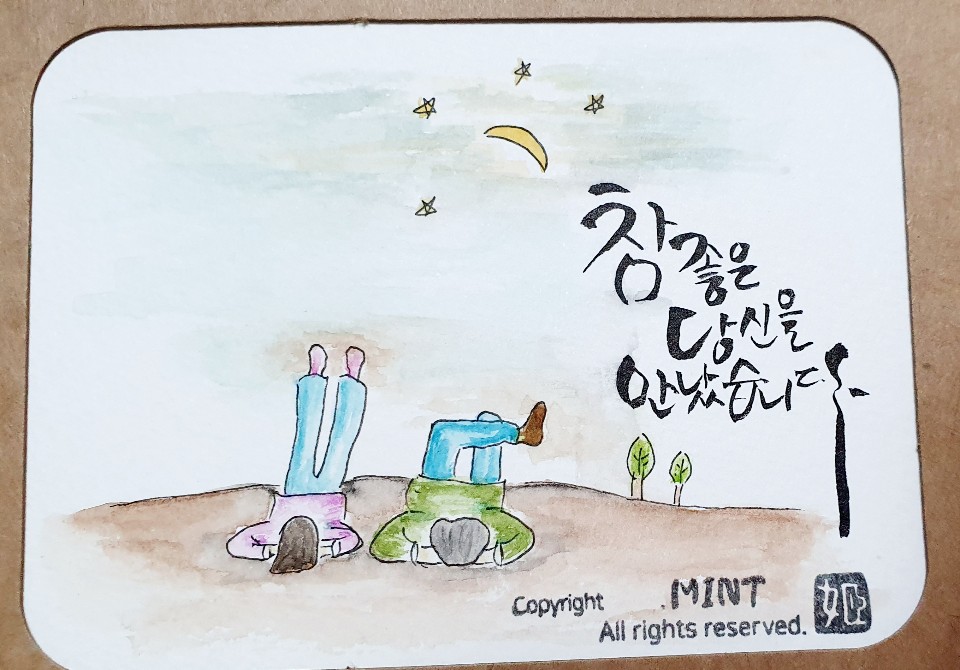 참 좋은
당신을
만났습니다
Copyright .MINT
All rights reserved.